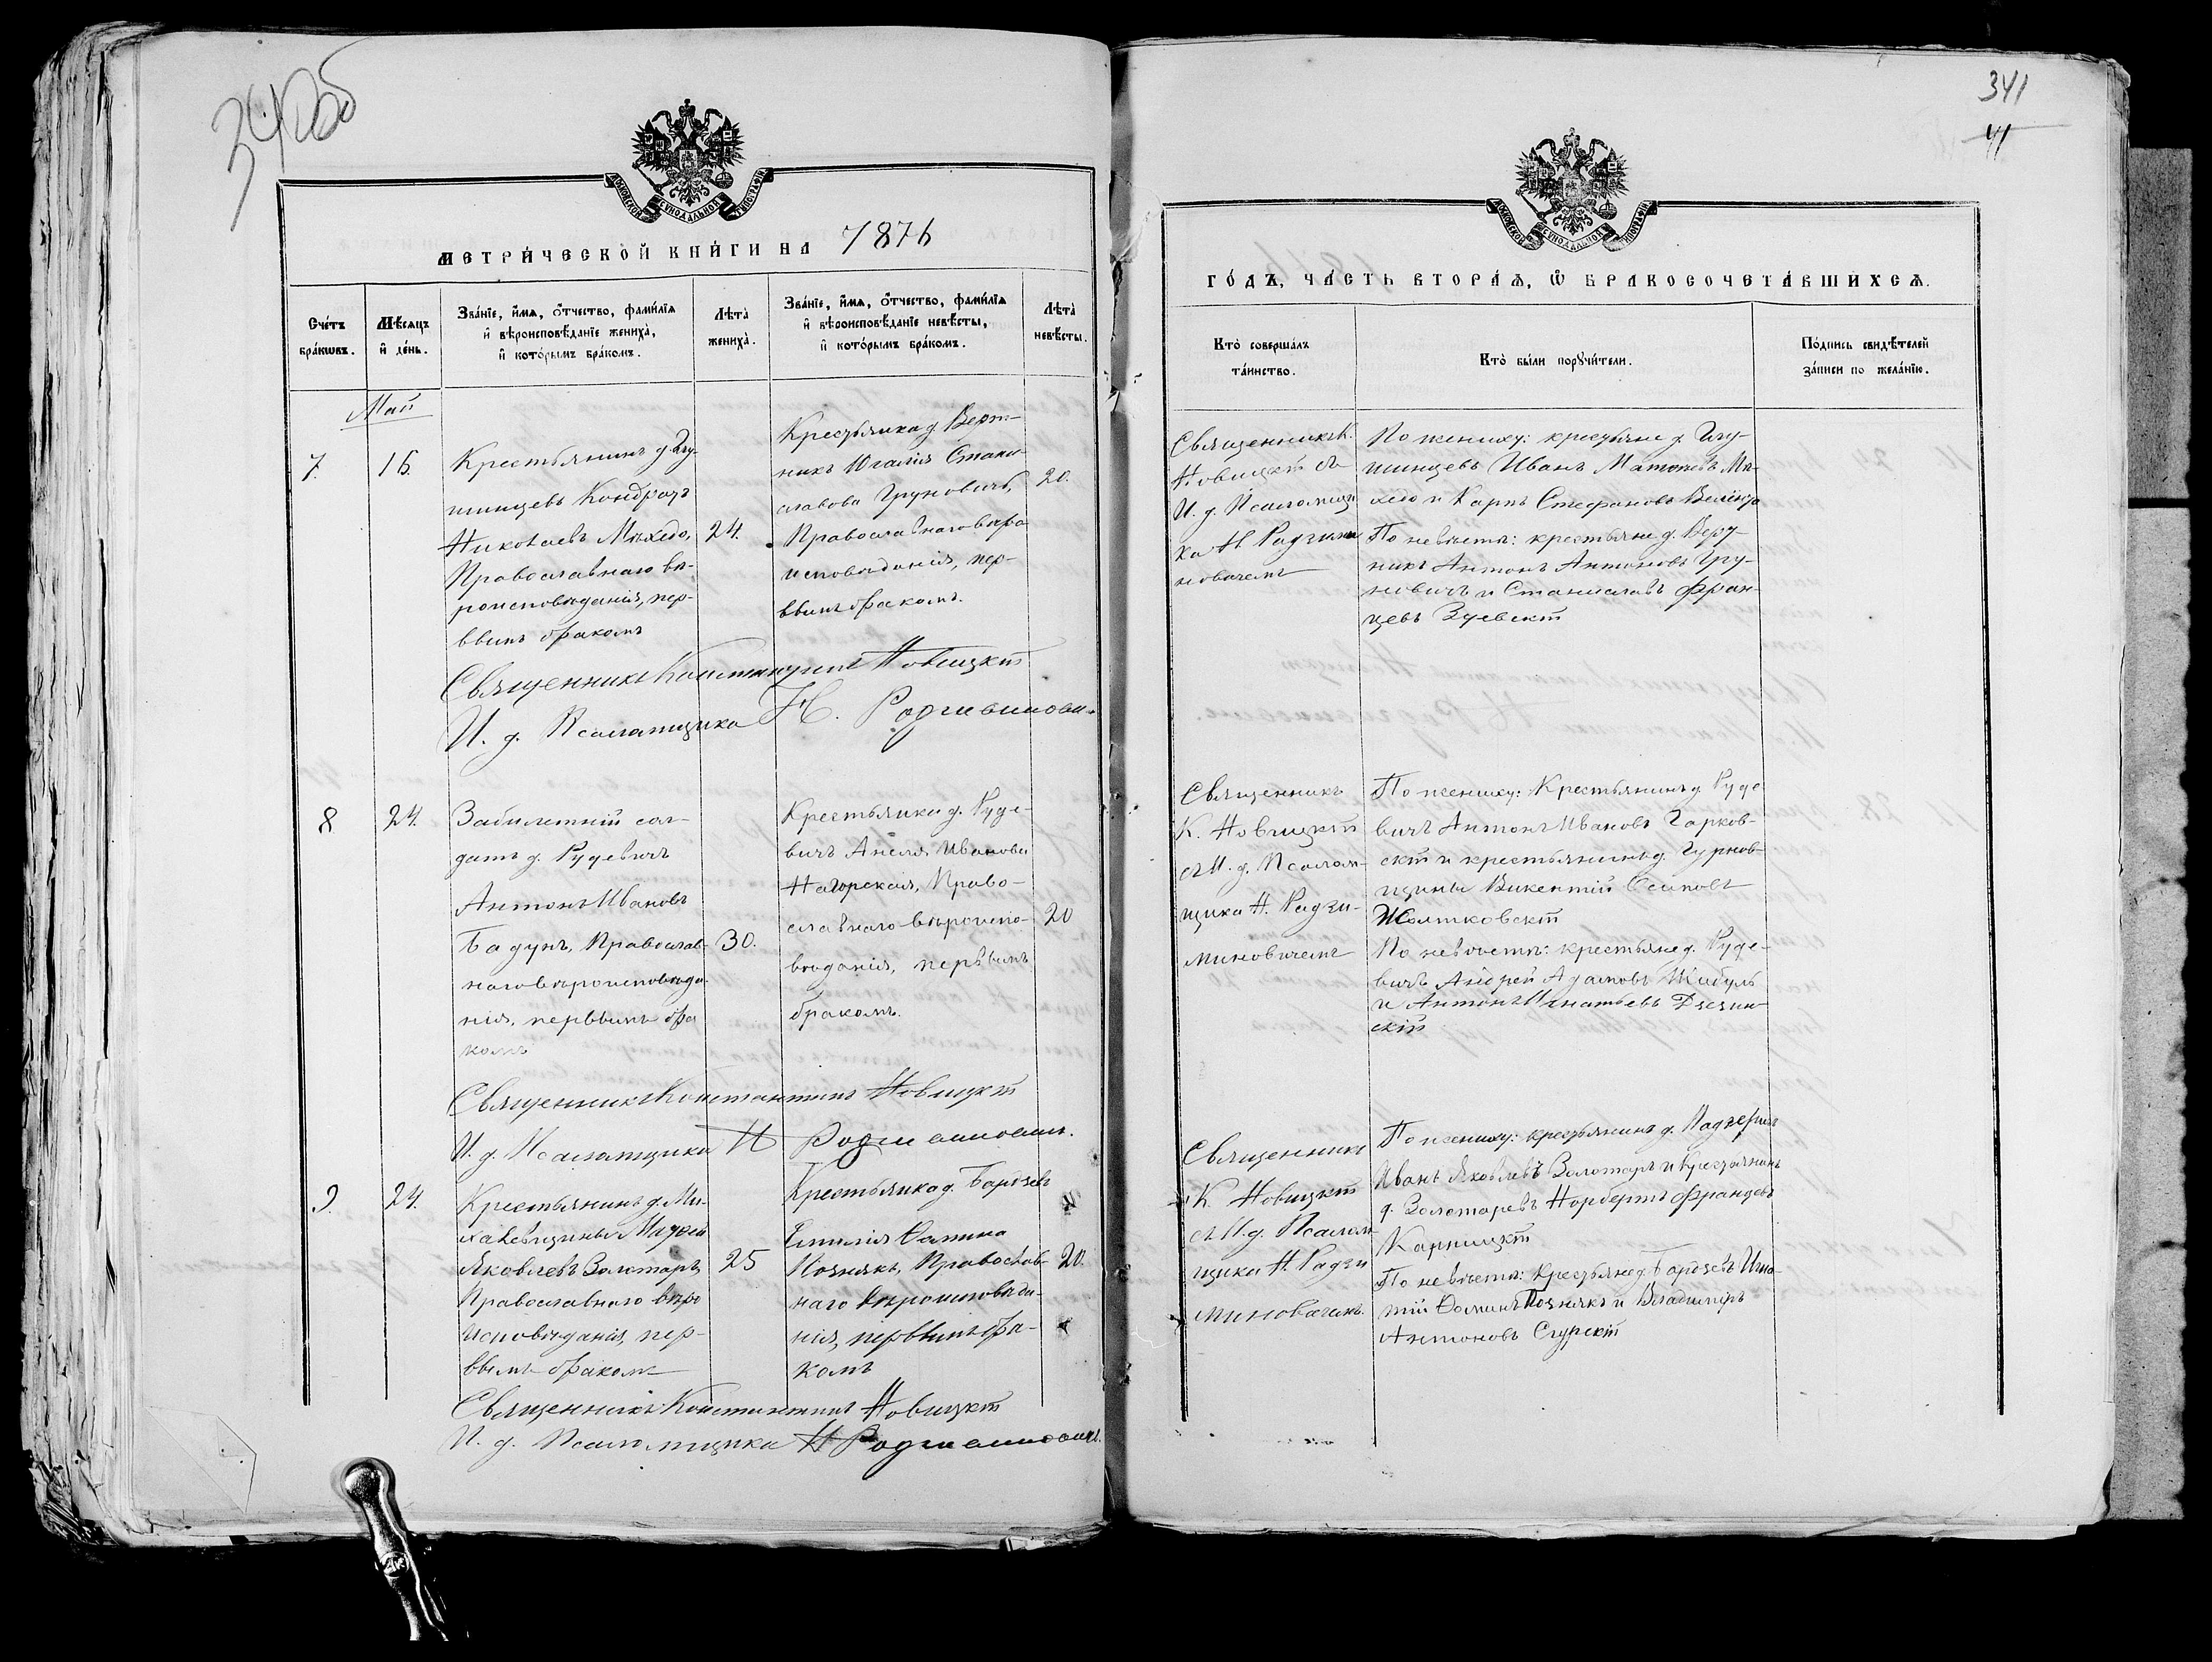 340об
341
41
МОСКОВСКОЙ СѴНОДАЛЬНОЙ ТИПОГРАФІИ
МЕТРИ́ЧЕСКОЙ КНИ́ГИ НА 1876
Сче́тъ бра́кѡвъ.
Мѣ́сѧцъ и҆ де́нь.
Зва́нїе, и҆́мѧ, ѻ҆́тчество, фами́лїѧ
и҆ вѣроисповѣ́данїе жениха̀,
и҆ кото́рымъ бра́комъ.
Лѣта̀ жениха̀.
Зва́нїе, и҆́мѧ, ѻ҆́тчество, фами́лїѧ
и҆ вѣроисповѣ́данїе невѣ́сты,
и҆ кото́рымъ бра́комъ.
Лѣта̀ невѣ́сты.
Май
7.
16.
Крестьянинъ д.
Кондратъ
Николаевъ
Православнаго вѣ-
роисповѣданія, пер-
вымъ бракомъ
24.
Крестьянка д. Верт-
никъ Юзалія Стани-
славова Груновичъ,
Православнаго вѣро
исповѣданія, пер-
вымъ бракомъ.
20.
Священникъ Константинъ Новицкій
И. д. Псаломщика Н. Радзиминовичъ
8
24.
Забилетный сол-
датъ д. Рудевичъ
Антонъ Ивановъ
Бадунъ, Православ-
наго вѣроисповѣда-
нія, первымъ бра
комъ
30.
Крестьянка д. Руде-
вичъ Анеля Иванова
Нагорская, Право-
славнаго вѣроиспо-
вѣданія, первымъ
бракомъ.
20
Священникъ Константинъ Новицкій
И. д. Псаломщика Н Радзиминовичъ.
9.
24.
Крестьянинъ д. Ми-
халевщины Матвей
Яковлевъ Золотарь,
Православнаго вѣро
исповѣданія, пер-
вымъ бракомъ
25
Крестьянка д. Бардзевъ
Емилія Ѳомина
Познякъ, Православ-
наго вѣроисповѣда-
нія, первымъ бра-
комъ
20.
Священникъ Константинъ Новицкій
И. д. Псаломщика Н Радзиминовичъ.
МОСКОВСКОЙ СѴНОДАЛЬНОЙ ТИПОГРАФІИ
ГО́ДЪ, ЧА́СТЬ ВТОРА́Ѧ, Ѽ БРАКОСОЧЕТА́ВШИХСѦ.
Кто̀ соверша́лъ та́инство.
Кто̀ бы́ли порꙋчи́тели.
По́дпись свидѣ́телей
за́писи по жела́нїю.
Священникъ К.
Новицкій съ
И. д. Псаломщи
ка Н Радзими
новичемъ
По жениху: крестьяне д.
Иванъ
и Карпъ Стефановъ
По невѣстѣ: крестьяне д. Верт-
никъ Антонъ Антоновъ Гру-
новичъ и Станиславъ Фран-
цевъ Зуевскій
Священникъ
К. Новицкій
съ И. д. Псалом-
щика Н. Радзи-
миновичемъ
По жениху: Крестьянинъ д. Руде
вичъ Антонъ Ивановъ Гарков-
скій и крестьянинъ д. Гурнов-
щины Викентій Осиповъ
Жолтковскій
По невѣстѣ: крестьяне д. Руде-
вичъ Андрей Адамовъ Жибуль
и Антонъ Игнатьевъ Дзезин-
скій
Священникъ
К. Новицкій
съ И. д. Псалом-
щика Н. Радзи
миновичемъ.
По жениху: крестьянинъ д.
Иванъ Яковлевъ Золотарь и Крестьянинъ
д. Золотаревъ Норбертъ Францевъ
Карпицкій
По невѣстѣ: Крестьяне д. Бардзевъ Игна-
тій Ѳоминъ Познякъ и Владиміръ
Антоновъ Сгурскій